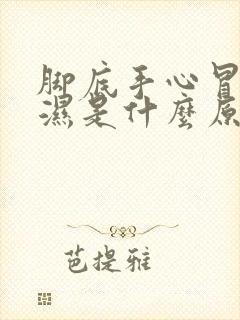 脚底手心冒
濕是什麼原
芭提雅